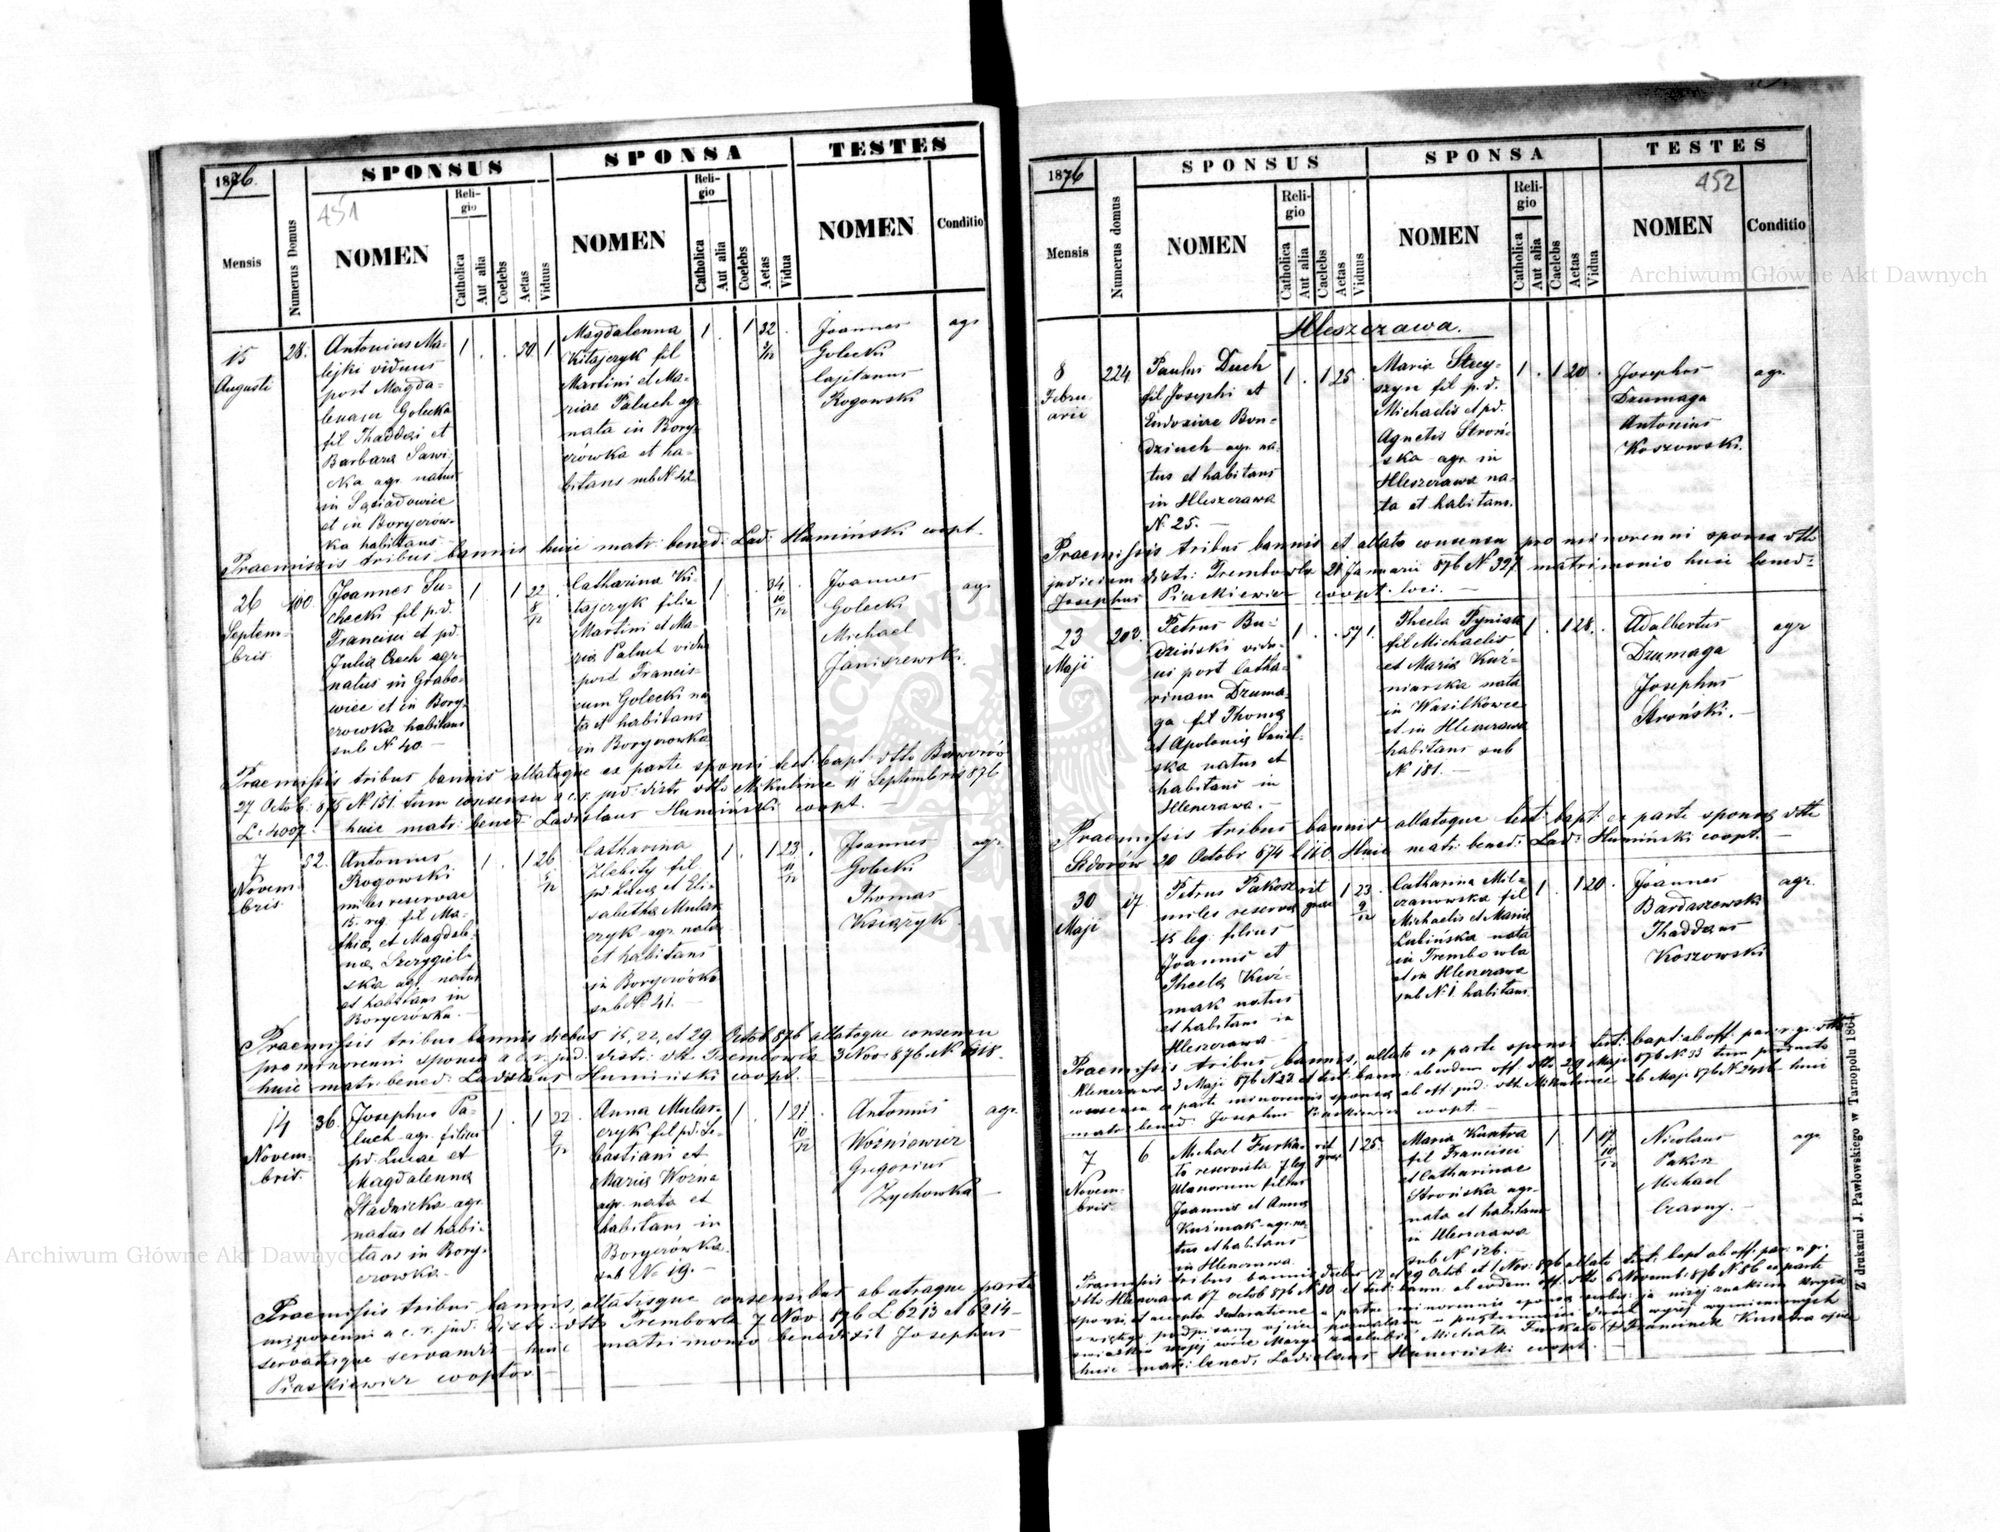 SPONSUS SPONSA TESTES
1876.
451
Mensis
Numerus Domus
NOMEN
Religio
Catholica
Aut alia
Coelebs
Aetas
Viduus
NOMEN
Religio
Catholica
Aut alia
Coelebs
Aetas
Vidua
NOMEN
Conditio
15
Augusti
28.
Antonius Ma-
lejki viduus
post Magda-
lenam Golecka
fil Thaddei et
Barbara Sawi
cka agr. natus
in
et in Borycrow-
ka habitans
1 . . 50 1
Magdalenna
Kitajczyk fil
Martini et Ma-
riae Paluch agr
nata in Bory-
crówka et ha-
bitans sub N 42
1 . 1 32
Joannes
Golecki
Cajetanus
Rogowski
agr
Praemissis tribus bannis huic matr: bened: Lad: Humiński coopt.
26
Septem-
bris
40.
Joannes Su-
checki fil p.d.
Francisci et pd.
Julia Czech agr.
natus in Grabo-
wiec et in Bory-
crowka habitans
sub N 40 —
1 . 1 22
8/12
Catharina Ki-
tajczyk filia
Martini et Ma-
ria Paluch vidua
post Francis-
cum Golecki na-
ta et habitans
in Borycrowka
1 . . 34
10/12
Joannes
Golecki
Michael
Janiszewski.
agr
Praemissis tribus bannis allatoque ex parte sponsi test: bapt: dtto Baworów
27 Octob: 875 N 151 tum consensu a c.r. jud: distr dtto Mikulince 11 Septembris 876
L: 4007 — huic matr: bened: Ladislaus Humiński coopt. —
7
Novem-
bris
52.
Antonius
Rogowski
miles reservae
15. reg. fil Ma-
thiae et Magdale-
nae Szczygiel-
ska agr. natus
et habitans in
Borycrówka. —
1 . 1 26
Catharina
Zlebity fil
pd Lucae et Eli-
sabetha Mular-
czyk agr. nata
et habitans
in Borycrówka
sub N 41. —
1 . 1 23
11/12
Joannes
Golecki
Thomas
Książyk
agr.
Praemissis tribus bannis diebus 15, 22, et 29 Octob 876 allatoque consensu
pro minorenni sponsa a c.r. jud: distr: dtto Trembowla 3 Nov: 876 N 6118.
huic matr: bened: Ladislaus Humiński coopt.
14
Novem-
bris
36.
Josephus Pa-
luch agr. filius
pd. Lucae et
Magdalenna
Stadnicka agr.
natus et habi-
tans in Bory-
crowka —
1 . 1 22
9/12
Anna Mular-
czyk fil pd. Se-
bastiani et
Maria Woźna
agr. nata et
habitans in
Borycrówka
sub N 19. —
1 . 1 21
10/12
Antonius
Woźniewicz
Gregorius
Zychowka —
agr.
Praemissis tribus bannis, allatisque consensibus ab utraque parte
minorenni a c.r. jud: distr: dtto Trembowla 7 Nov: 876 L 6213 et 6214 —
servatisque servandis — huic matrimonio benedixit Josephus
Piaskiewicz cooptor —
SPONSUS SPONSA TESTES
1876
452
Mensis
Numerus domus
NOMEN
Religio
Catholica
Aut alia
Caelebs
Aetas
Viduus
NOMEN
Religio
Catholica
Aut alia
Caelebs
Aetas
Vidua
NOMEN
Conditio
Hleszczawa.
8
Febru-
arii
224
Paulus Duch
fil Josephi et
Eudoxiae Bon-
dziuch agr. na-
tus et habitans
in Hleszczawa
N. 25. —
1 . 1 25
Maria Strey-
szyn fil p.d.
Michaelis et pd.
Agnetis Stroń-
ska agr. in
Hleszczawa na-
ta et habitans.
1 . 1 20
Josephus
Dzumaga
Antonius
Koszowski.
agr.
Praemissis tribus bannis et allato consensu pro minorenni sponsa dtto
judicium distr: Trembowla 21 Januarii 876 N 327 matrimonio huic bened-
Josephus Piaskiewicz coopt. loci. —
23
Maji
203.
Petrus Bu-
dziński vidu-
us post Catha-
rinam Dzuma-
ga fil Thoma
et Apolonia Sawel-
ska natus et
habitans in
Hleszczawa. —
1 . . 57 1.
Thecla Tyniak
fil Michaelis
et Maria Kuź-
niarska nata
in Wasilkowce
et in Hleszczawa
habitans sub
N 181. —
1 . 1 28.
Adalbertus
Dzumaga
Josephus
Stroński. —
agr
Praemissis tribus bannis allatoque test: bapt: ex parte sponsa dtto
Sidorów 20 Octobr 874 L 140. Huic matr: bened: Lad: Humiński coopt. —
30
Maji
17
Petrus Pakosz
miles reserva
15 leg. filius
Joannis et
Thecla Kuź-
mak natus
et habitans in
Hleszczawa
rit
graec
1 23
9/12
Catharina Mil-
czanowska fil
Michaelis et Maria
Lubińska nata
in Trembowla
et in Hleszczawa
sub N 1 habitans
1 . 1 20
Joannes
Bardaszewski
Thaddaus
Koszowski
agr.
Praemissis tribus bannis, allato ex parte sponsi test: bapt: ab off. par. r. gr. dtto
Hleszczawa 3 Maji 876 N 22 et test: bann: ab eodem off. dtto 29 Maji 876 N 33 tum producto
consensu ex parte minorennis sponsa ab off jud: dtto Mikulince 26 Maji 876 N huic
matr: bened: Josephus Piaskiewicz coopt. —
7
Novem-
bris
6
Michael Furka-
to reservista 7 leg.
Ulanorum filius
Joannis et Anna
Kuźmak agr. na-
tus et habitans
in Hleszczawa
rit
graec
1 25
Maria Kuntra
fil Francisci
et Catharinae
Strońska agr.
nata et habitans
in Hleszczawa
sub N 126. —
1 . 1 17
10/12
Nicolaus
Pakosz
Michael
Czarny. —
agr
Praemissis tribus bannis diebus et 29 Octob et 1 Nov: 876 allato test: bapt ab off. par. r. gr.
dtto Hleszczawa 17 octob 876 N 80 et test: bann: ab eodem off: dtto 6 Novemb: 876 N 86 ex parte
sponsi, et accepta declaratione a patre minorennis sponsa verba: ja niżej znakiem krzyża
świętego podpisany ojciec pozwalam w przytomności dwóch wyżej wymienionych
świadków mojej córce Maryi zaślubić Michała Furkato (†) Franciszek Kuntra ojciec
huic matr: bened: Ladislaus Humiński coopt. —
Z drukarni J. Pawłowskiego w Tarnopolu 1864
Archiwum Główne Akt Dawnych
Archiwum Główne Akt Dawnych